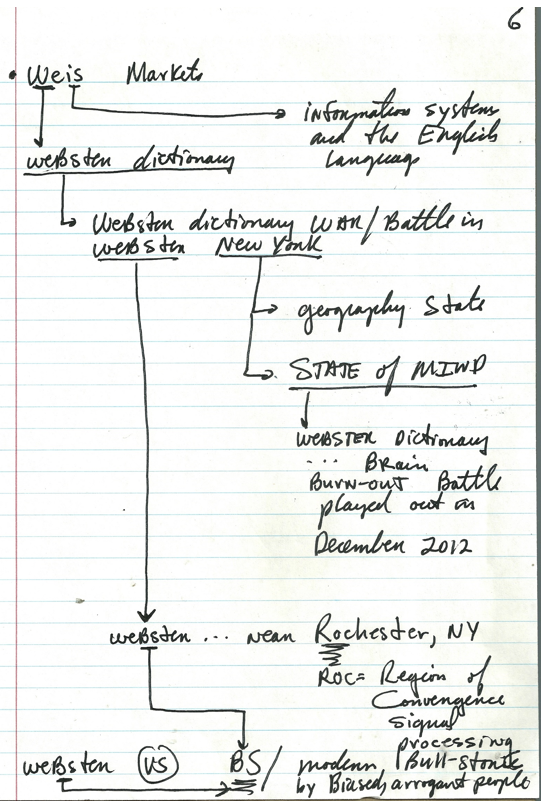 6
• Weis Markets
information systems
and the English
Language
webster dictionary
Webster dictionary WAR / Battle in
webster New York
geography state
STATE of MIND
WEBSTER Dictionary
... BRAIN
BURN-OUT Battle
played out in
December 2012
webster ... near Rochester, NY
ROC = Region of
Convergence
signal
processing
webster VS BS / modern / Bull-stories
by Biased, arrogant people